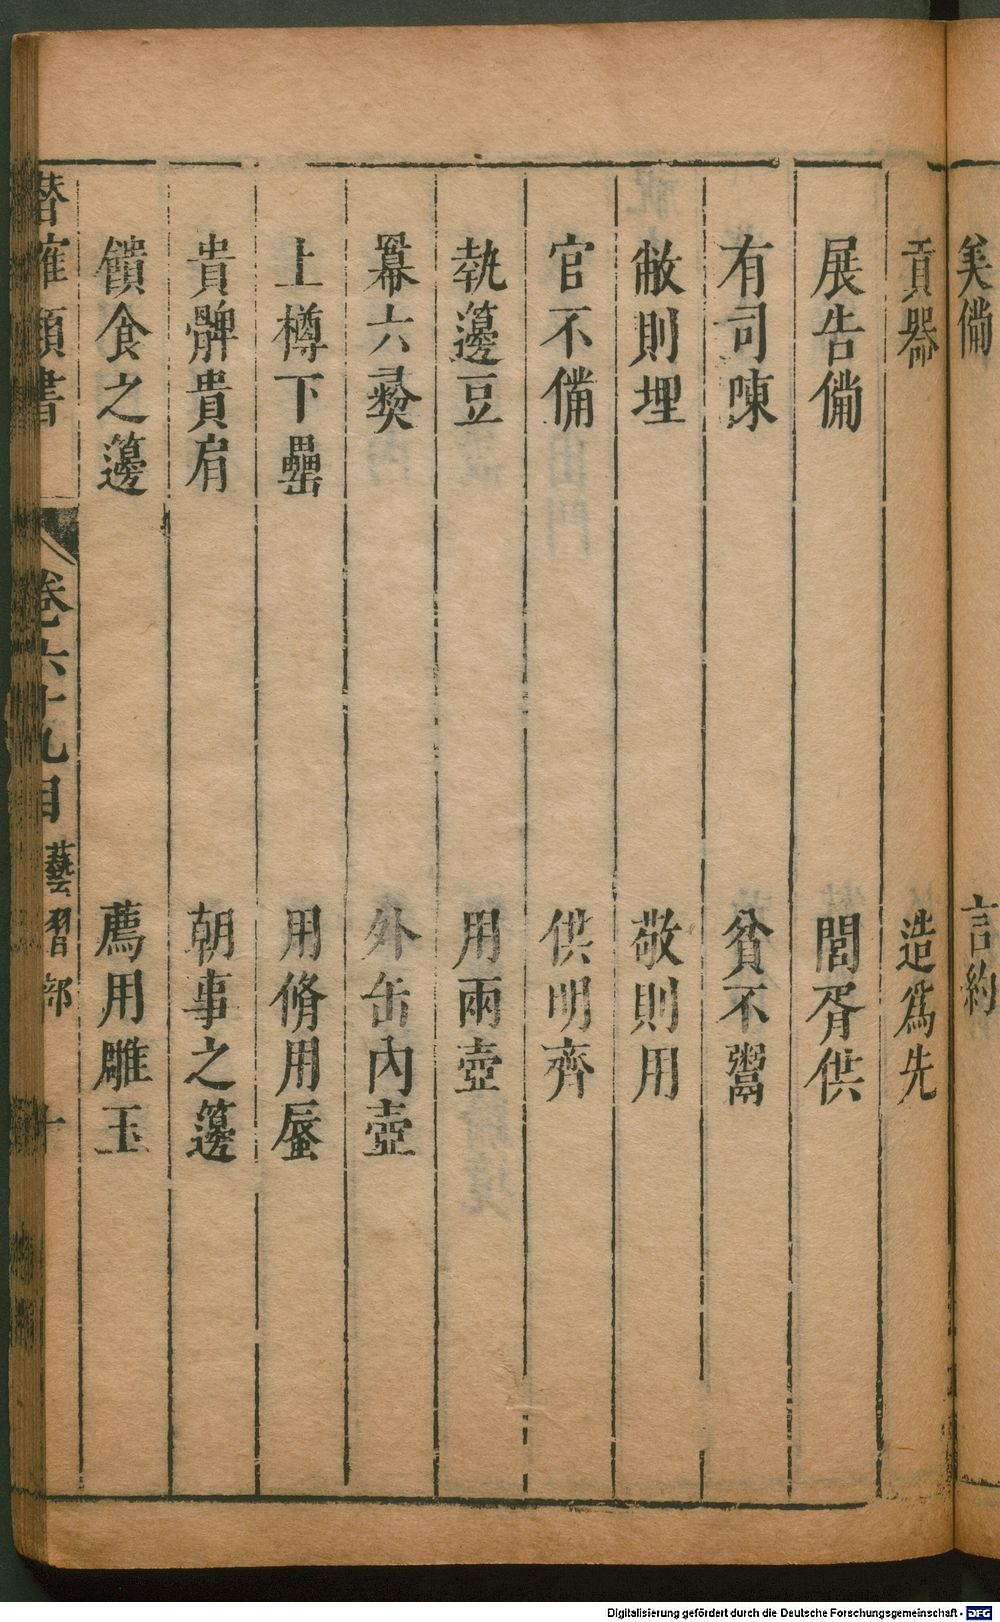 美備
言約
貢器
造爲先
展告備
閽胥供
有司陳
貧不鬻
敝則埋
敬則用
官不備
供明齊
執籩豆
用兩壺
冪六彜
外缶內壺
上樽下罍
用脩用蜃
貴髀貴肩
朝事之籩
饋食之籩
薦用雕玉
潛確類書
卷六十九目
藝習部
十
Digitalisierung gefördert durch die Deutsche Forschungsgemeinschaft - DFG